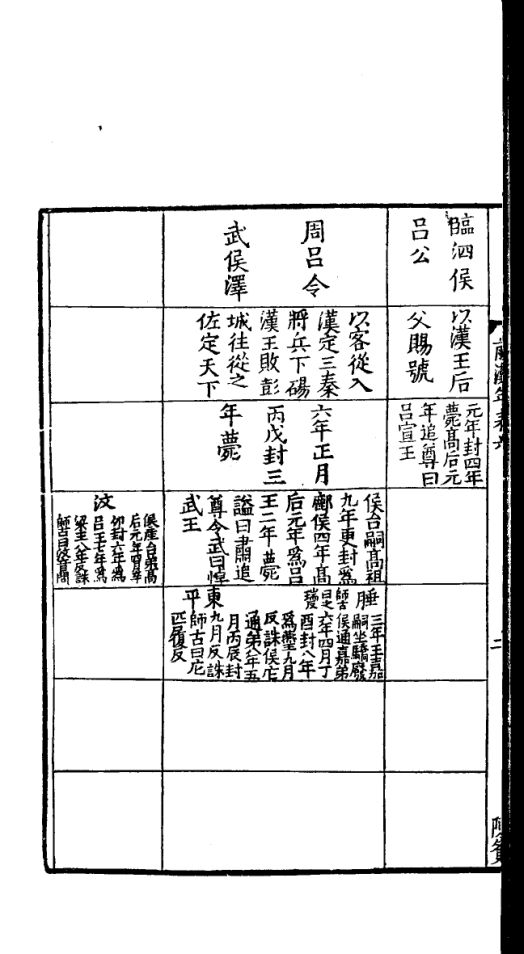 臨泗侯
呂公
以漢王后
父賜號
元年封四年
薨高后元
年追尊曰
呂宣王
周呂令
武侯澤
以客從入
漢定三秦
將兵下碭
漢王敗彭
城往從之
佐定天下
六年正月
丙戌封三
年薨
侯台嗣高祖
九年更封爲
酈侯四年高
后元年爲呂
王二年薨
謚曰肅追
尊令武曰悼
武王
腄
三年王嘉
嗣坐驕廢
師古
侯通嘉弟
曰
六年四月丁
酉封八年
爲燕王九月
反誅侯庀
通弟八年五
月丙辰封
東
平
九月反誅
師古曰庀
匹履反
汶
侯產台弟高
后元年四月辛
卯封六年爲
呂王七年爲
梁王八年反誅
師古曰汶音問
二